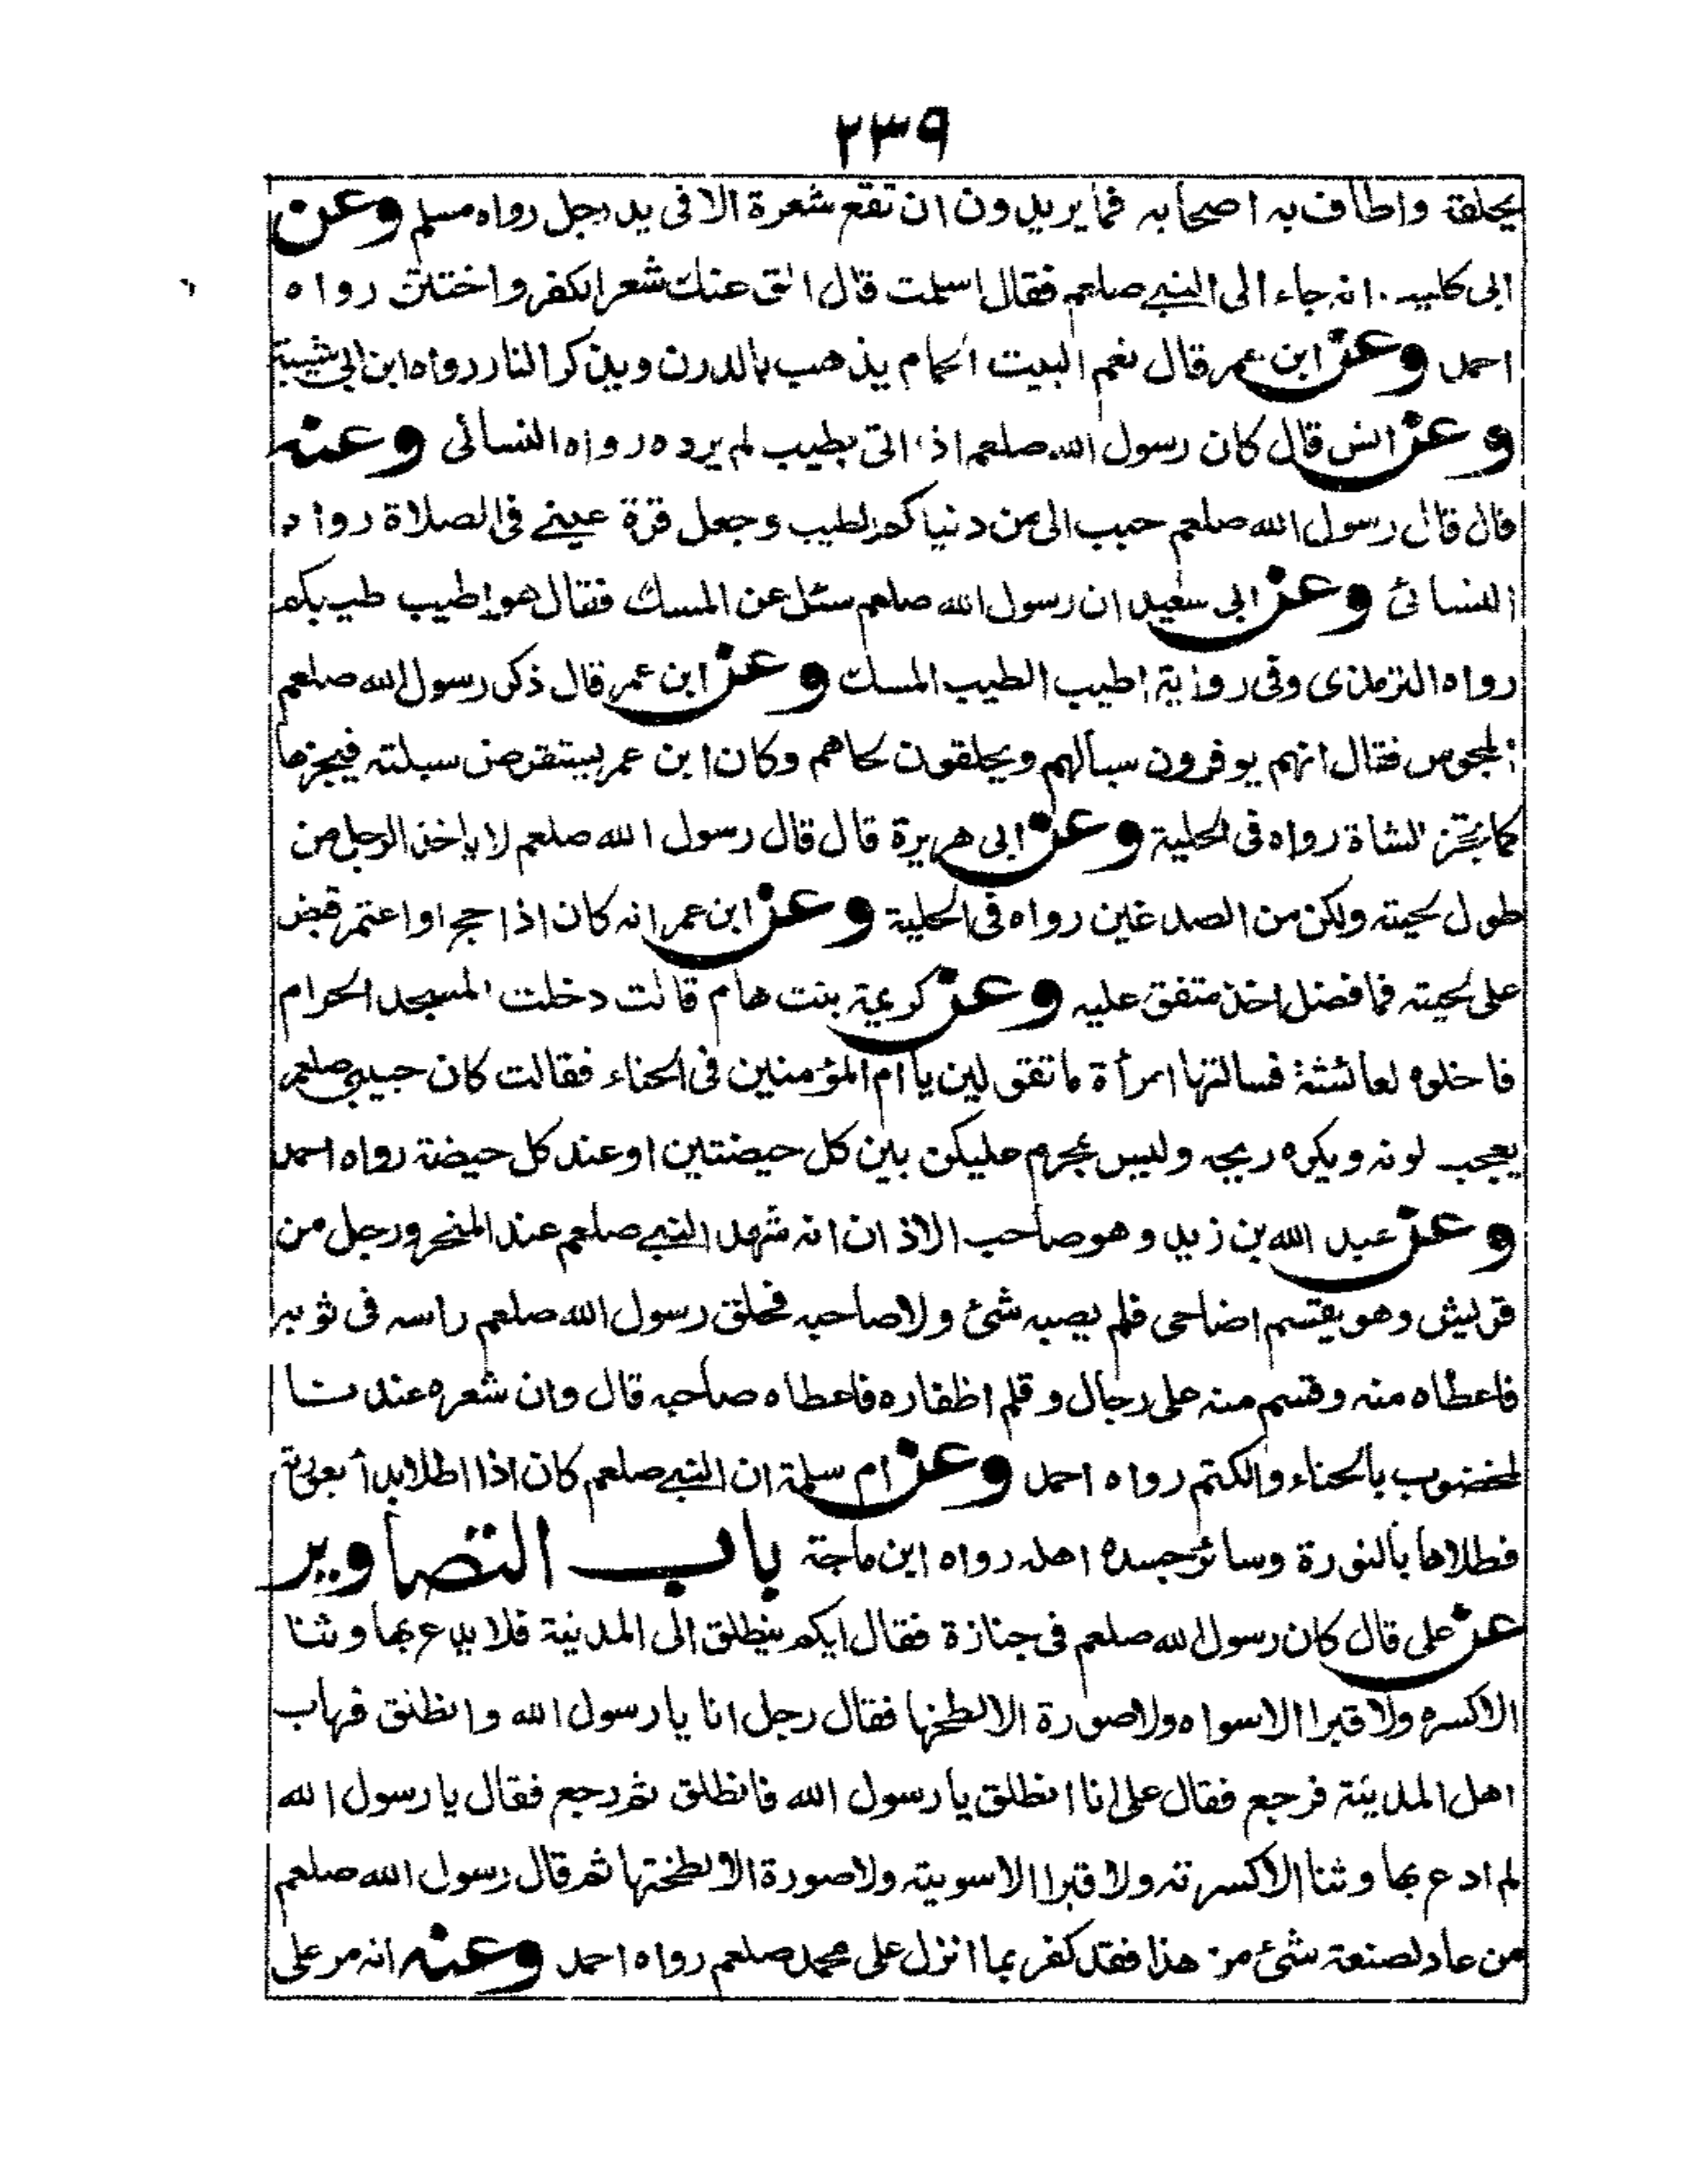 ٢٣٩
يحلقه واطاف به اصحابه فما يريدون ان تقع شعرة الا فى يد رجل رواه مسلم وعن
ابى كليب انه جاء الى النبى صلعم فقال اسلمت قال الق عنك شعر الكفر واختتن رواه
احمد وعن ابن عمر قال نعم البيت الحمام يذهب بالدرن ويذكر النار رواه ابن ابى شيبة
وعن انس قال كان رسول الله صلعم اذا اتى بطيب لم يرده رواه النسائى وعنه
قال قال رسول الله صلعم حبب الى من دنياكم الطيب وجعل قرة عينى فى الصلاة رواه
النسائى وعن ابى سعيد ان رسول الله صلعم سئل عن المسك فقال هو اطيب طيبكم
رواه الترمذى وفى رواية اطيب الطيب المسك وعن ابن عمر قال ذكر رسول الله صلعم
المجوس فقال انهم يوفرون سبالهم ويحلقون لحاهم وكان ابن عمر يستقرض سبلته فيجزها
كما تجتز الشاة رواه فى الحلية وعن ابى هريرة قال قال رسول الله صلعم لا ياخذ الرجل من
طول لحيته ولكن من الصدغين رواه فى الحلية وعن ابن عمر انه كان اذا حج او اعتمر قبض
على لحيته فما فضل اخذ متفق عليه وعن كريمة بنت همام قالت دخلت المسجد الحرام
فاخلوه لعائشة فسالتها امرأة ما تقولين يا ام المؤمنين فى الحناء فقالت كان حبيبى صلعم
يعجب لونه ويكره ريحه وليس بمحرم عليكن بين كل حيضتين او عند كل حيضة رواه احمد
وعن عبد الله بن زيد وهو صاحب الاذان انه شهد النبى صلعم عند المنحر ورجل من
قريش وهو يقسم اضاحى فلم يصبه شئ ولا صاحبه فحلق رسول الله صلعم راسه فى ثوبه
فاعطاه منه وقسم منه على رجال وقلم اظفاره فاعطاه صاحبه قال وان شعره عندنا
لمخضوب بالحناء والكتم رواه احمد وعن ام سلمة ان النبى صلعم كان اذا اطلا بدأ بعورته
فطلاها بالنورة وسائر جسده اهله رواه ابن ماجة باب التصاوير
عن على قال كان رسول الله صلعم فى جنازة فقال ايكم ينطلق الى المدينة فلا يدع بها وثنا
الا كسره ولا قبرا الا سواه ولا صورة الا لطخها فقال رجل انا يا رسول الله وانطلق فهاب
اهل المدينة فرجع فقال على انا انطلق يا رسول الله فانطلق ثم رجع فقال يا رسول الله
لم ادع بها وثنا الا كسرته ولا قبرا الا سويته ولا صورة الا لطختها ثم قال رسول الله صلعم
من عاد لصنعة شئ من هذا فقد كفر بما انزل على محمد صلعم رواه احمد وعنه انه مر على